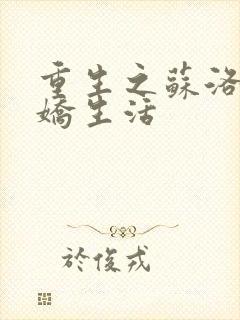 重生之蘇洛
嬌生活
於俊戎